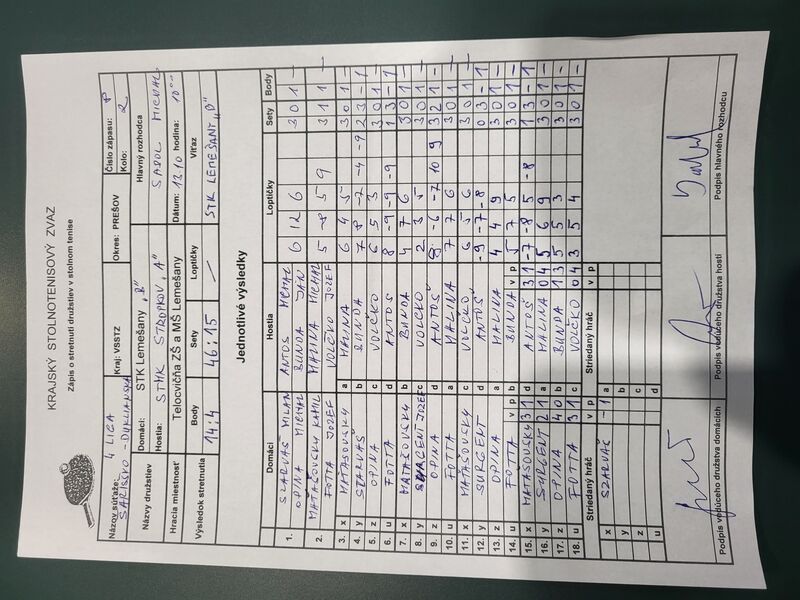 KRAJSKÝ STOLNOTENISOVÝ ZVAZ
Zápis o stretnutí družstiev v stolnom tenise
Názov súťaže: 4 LIGA Kraj: VSSTZ Okres: PREŠOV Číslo zápasu: 8
ŠARIŠSKO-DUKLIANSKA Kolo: 2
Názvy družstiev Domáci: STK Lemešany „B" Hlavný rozhodca
Hostia: STMK STROPKOV „A" SABOL MICHAL
Hracia miestnosť Telocvičňa ZŠ a MŠ Lemešany Dátum: 13.10 hodina: 10°°
Výsledok stretnutia Body Sety Loptičky Víťaz
14:4 46:15 — STK LEMEŠANY „B"
Jednotlivé výsledky
Domáci Hostia Loptičky Sety Body
1. SZARVAŠ MILAN ANTOŠ MICHAL 6 12 6 3 0 1 –
OPINA MICHAL BUNDA JÁN
2. MAŤAŠOVSKÝ KAMIL MALINA MICHAL 5 -8 5 9 3 1 1 –
FOTTA JOZEF VOLČKO JOZEF
3. x MAŤAŠOVSKÝ a MALINA 6 4 5 3 0 1 –
4. y SZARVAŠ b BUNDA 7 8 -7 -4 -9 2 3 – 1
5. z OPINA c VOLČKO 6 5 3 3 0 1 –
6. u FOTTA d ANTOŠ 8 -9 -9 -9 1 3 – 1
7. x MAŤAŠOVSKÝ b BUNDA 4 7 6 3 0 1 –
8. y SURGENT JOZEF c VOLČKO 2 3 5 3 0 1 –
9. z OPINA d ANTOŠ 8 -6 -7 10 9 3 2 1 –
10. u FOTTA a MALINA 7 7 6 3 0 1 –
11. x MAŤAŠOVSKÝ c VOLČKO 6 5 6 3 0 1 –
12. y SURGENT d ANTOŠ -9 -7 -8 0 3 – 1
13. z OPINA a MALINA 4 4 9 3 0 1 –
14. u FOTTA v p b BUNDA v p 5 7 5 3 0 1 –
15. x MAŤAŠOVSKÝ 3 1 d ANTOŠ 3 1 -7 -8 5 -8 1 3 – 1
16. y SURGENT 2 1 a MALINA 0 4 5 6 9 3 0 1 –
17. z OPINA 4 0 b BUNDA 1 3 5 5 3 3 0 1 –
18. u FOTTA 3 1 c VOLČKO 0 4 3 5 4 3 0 1 –
Striedaný hráč v p Striedaný hráč v p
x SZARVAŠ – 1 a
y b
z c
u d
Podpis vedúceho družstva domácich Podpis vedúceho družstva hostí Podpis hlavného rozhodcu